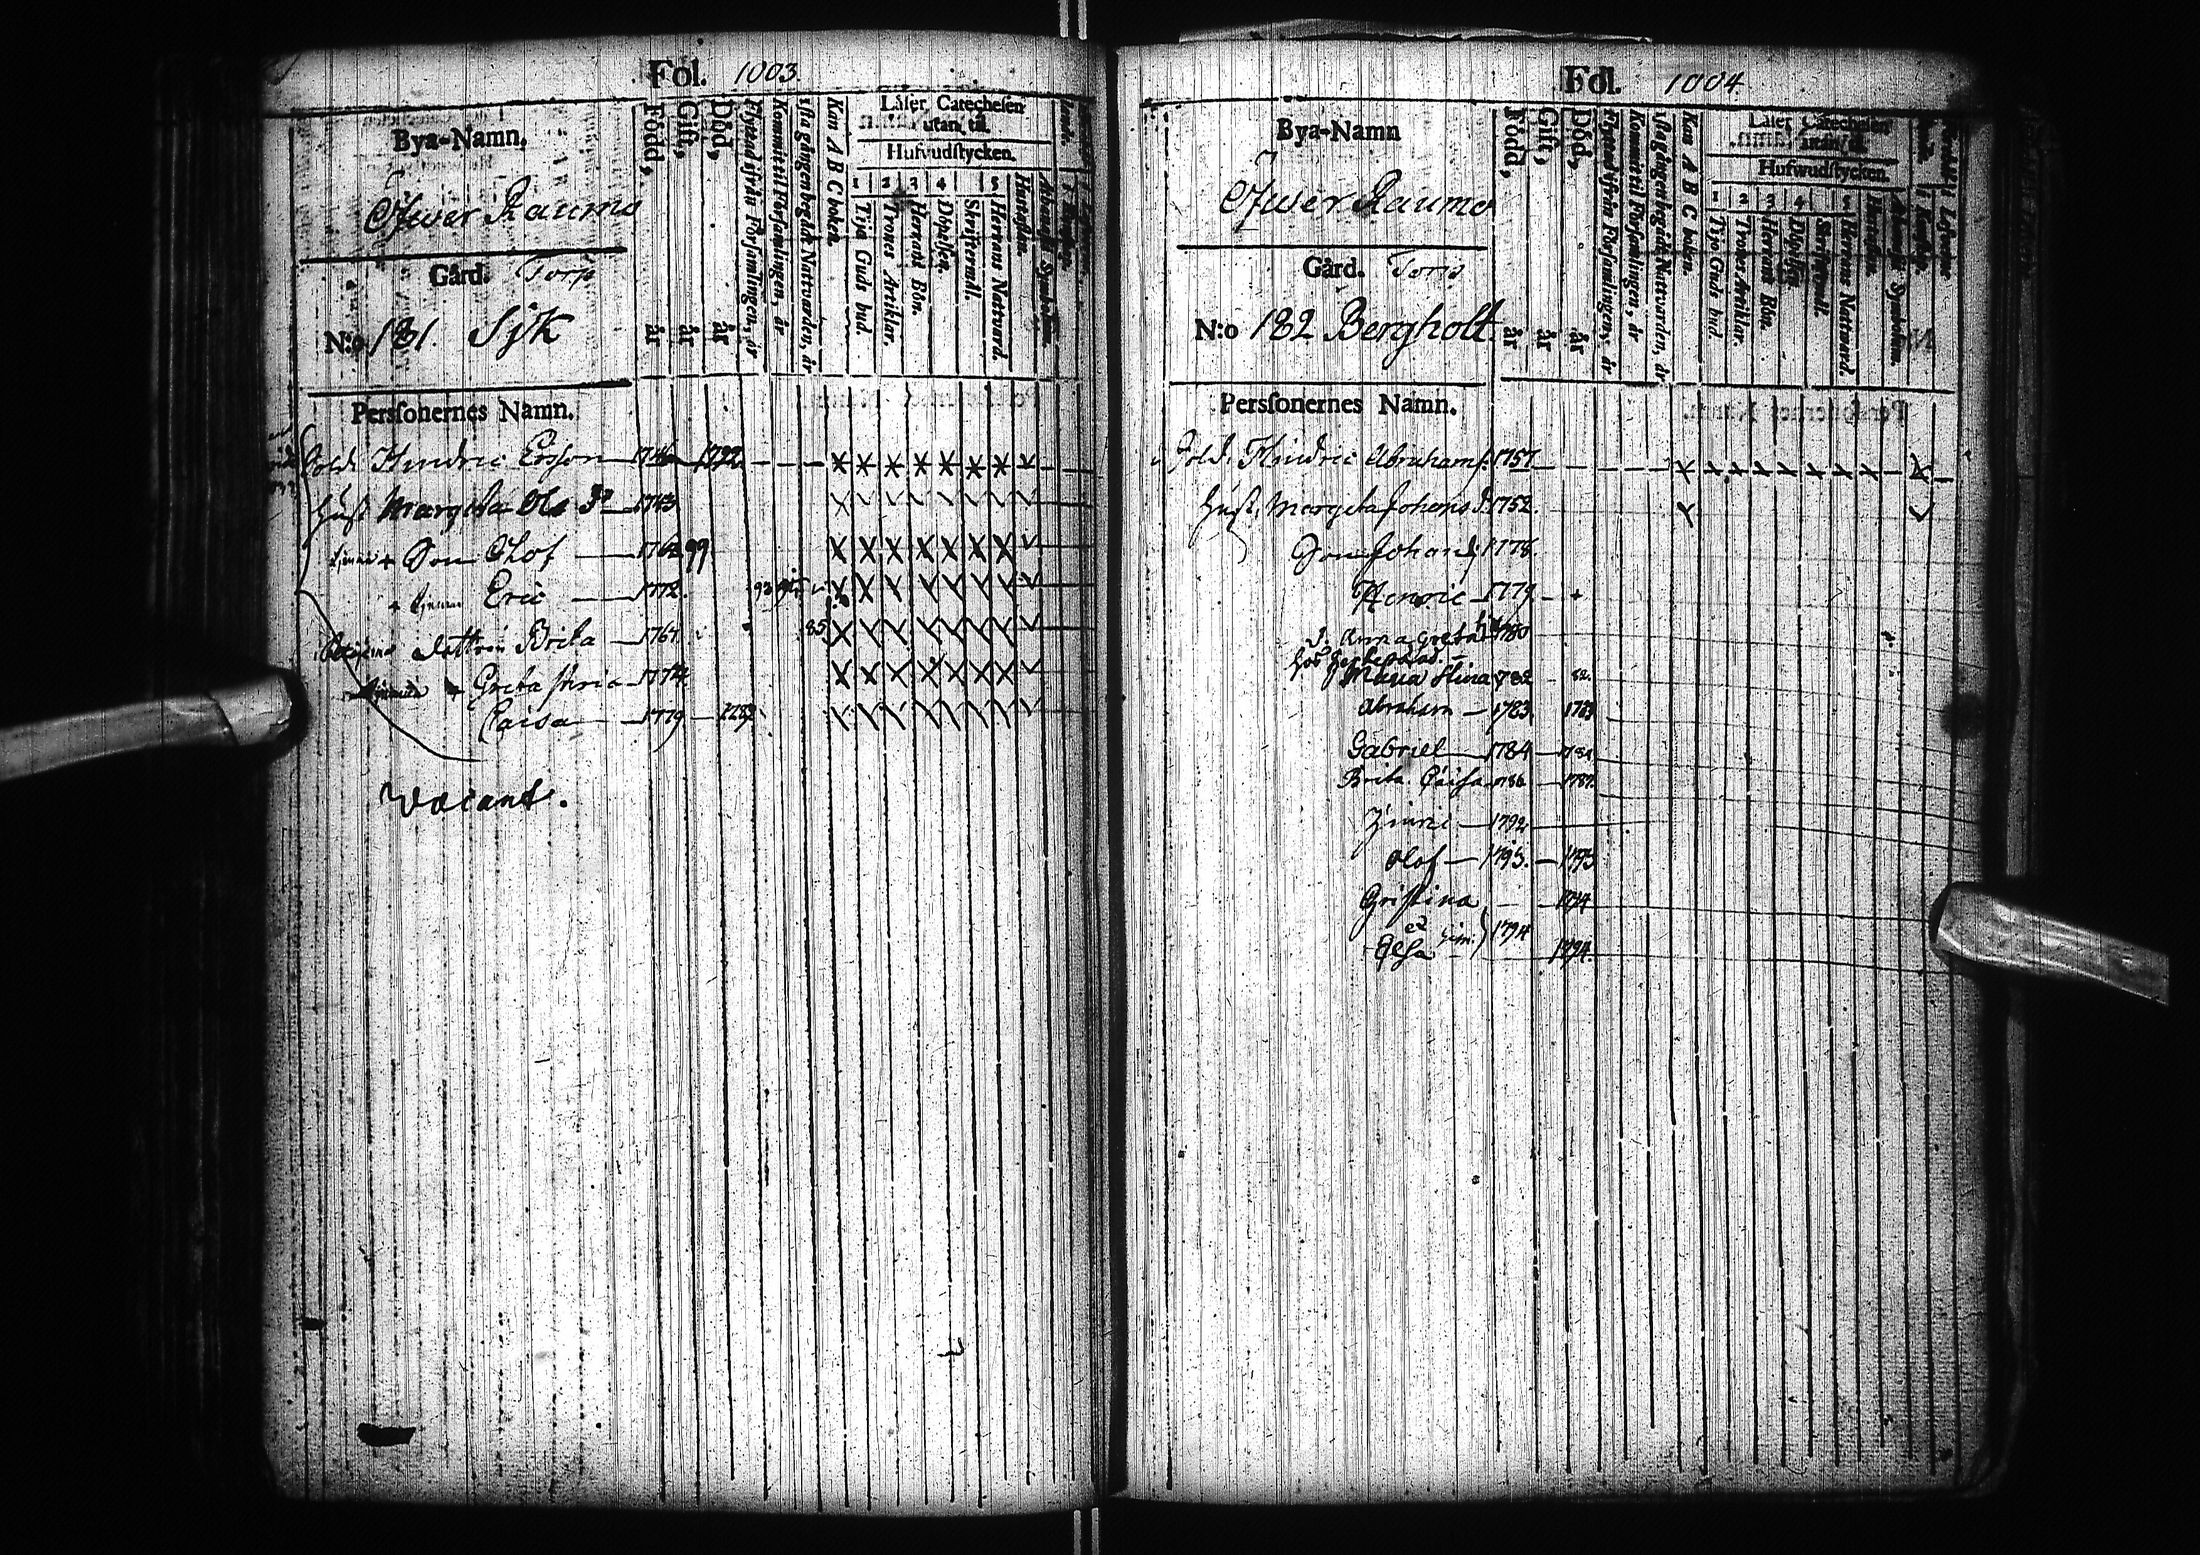 Fol. 1003.
Bya-Namn.
Öfwer Raumo
Gård. Torp
N:o 181. Sjk
Född, år
Gift, år
Död, år
Flyttad ifrån Församlingen, år
Kommit til Församlingen, år
sista gången begådt Nattvarden, år
Kan A B C boken.
Läser Catechesen
utan til.
Hufvudstycken.
1 2 3 4 5
Tijo Guds bud.
Trones Artiklar.
Herrans Bön.
Döpelsen.
Skriftermål.
Herrans Nattvard.
Hustaflan.
Athanasii Symbolum.
Perssonernes Namn.
Sold. Hindric Ersson 1746 1792
Hust. Margeta Ols Dr 1743
Son Olof 1762 99
Eric 1772. 93 95
dottren Brita 1767 85
Greta Maria 1774
Caisa 1779 1789
Vacant.
Fol. 1004.
Bya-Namn
Öfwer Raumo
Gård. Torp
N:o 182 Bergholt.
Född, år
Gift, år
Död, år
Flyttad ifrån Församlingen, år
Kommit til Församlingen, år
sista gången begådt Nattvarden, år
Kan A B C boken.
Läser Catechesen
utan til.
Hufwudstycken.
1 2 3 4 5
Tijo Guds bud.
Trones Artiklar.
Herrans Bön.
Döpelsen.
Skriftermål.
Herrans Nattvard.
Hustaflan.
Athanasii Symbolum.
Perssonernes Namn.
Sold. Hindric Abrahams. 1757
Hust. Margeta Johans D. 1752.
Son Johan 1778.
Henric 1779
D. Anna Greta 1780
Maria Stina 1782 82.
Abraham 1783 1783
Gabriel 1784 1784
Brita Caisa 1786 1787.
1792
Olof 1793. 1793
Cristina 1794
et
Elsa 1794 1794